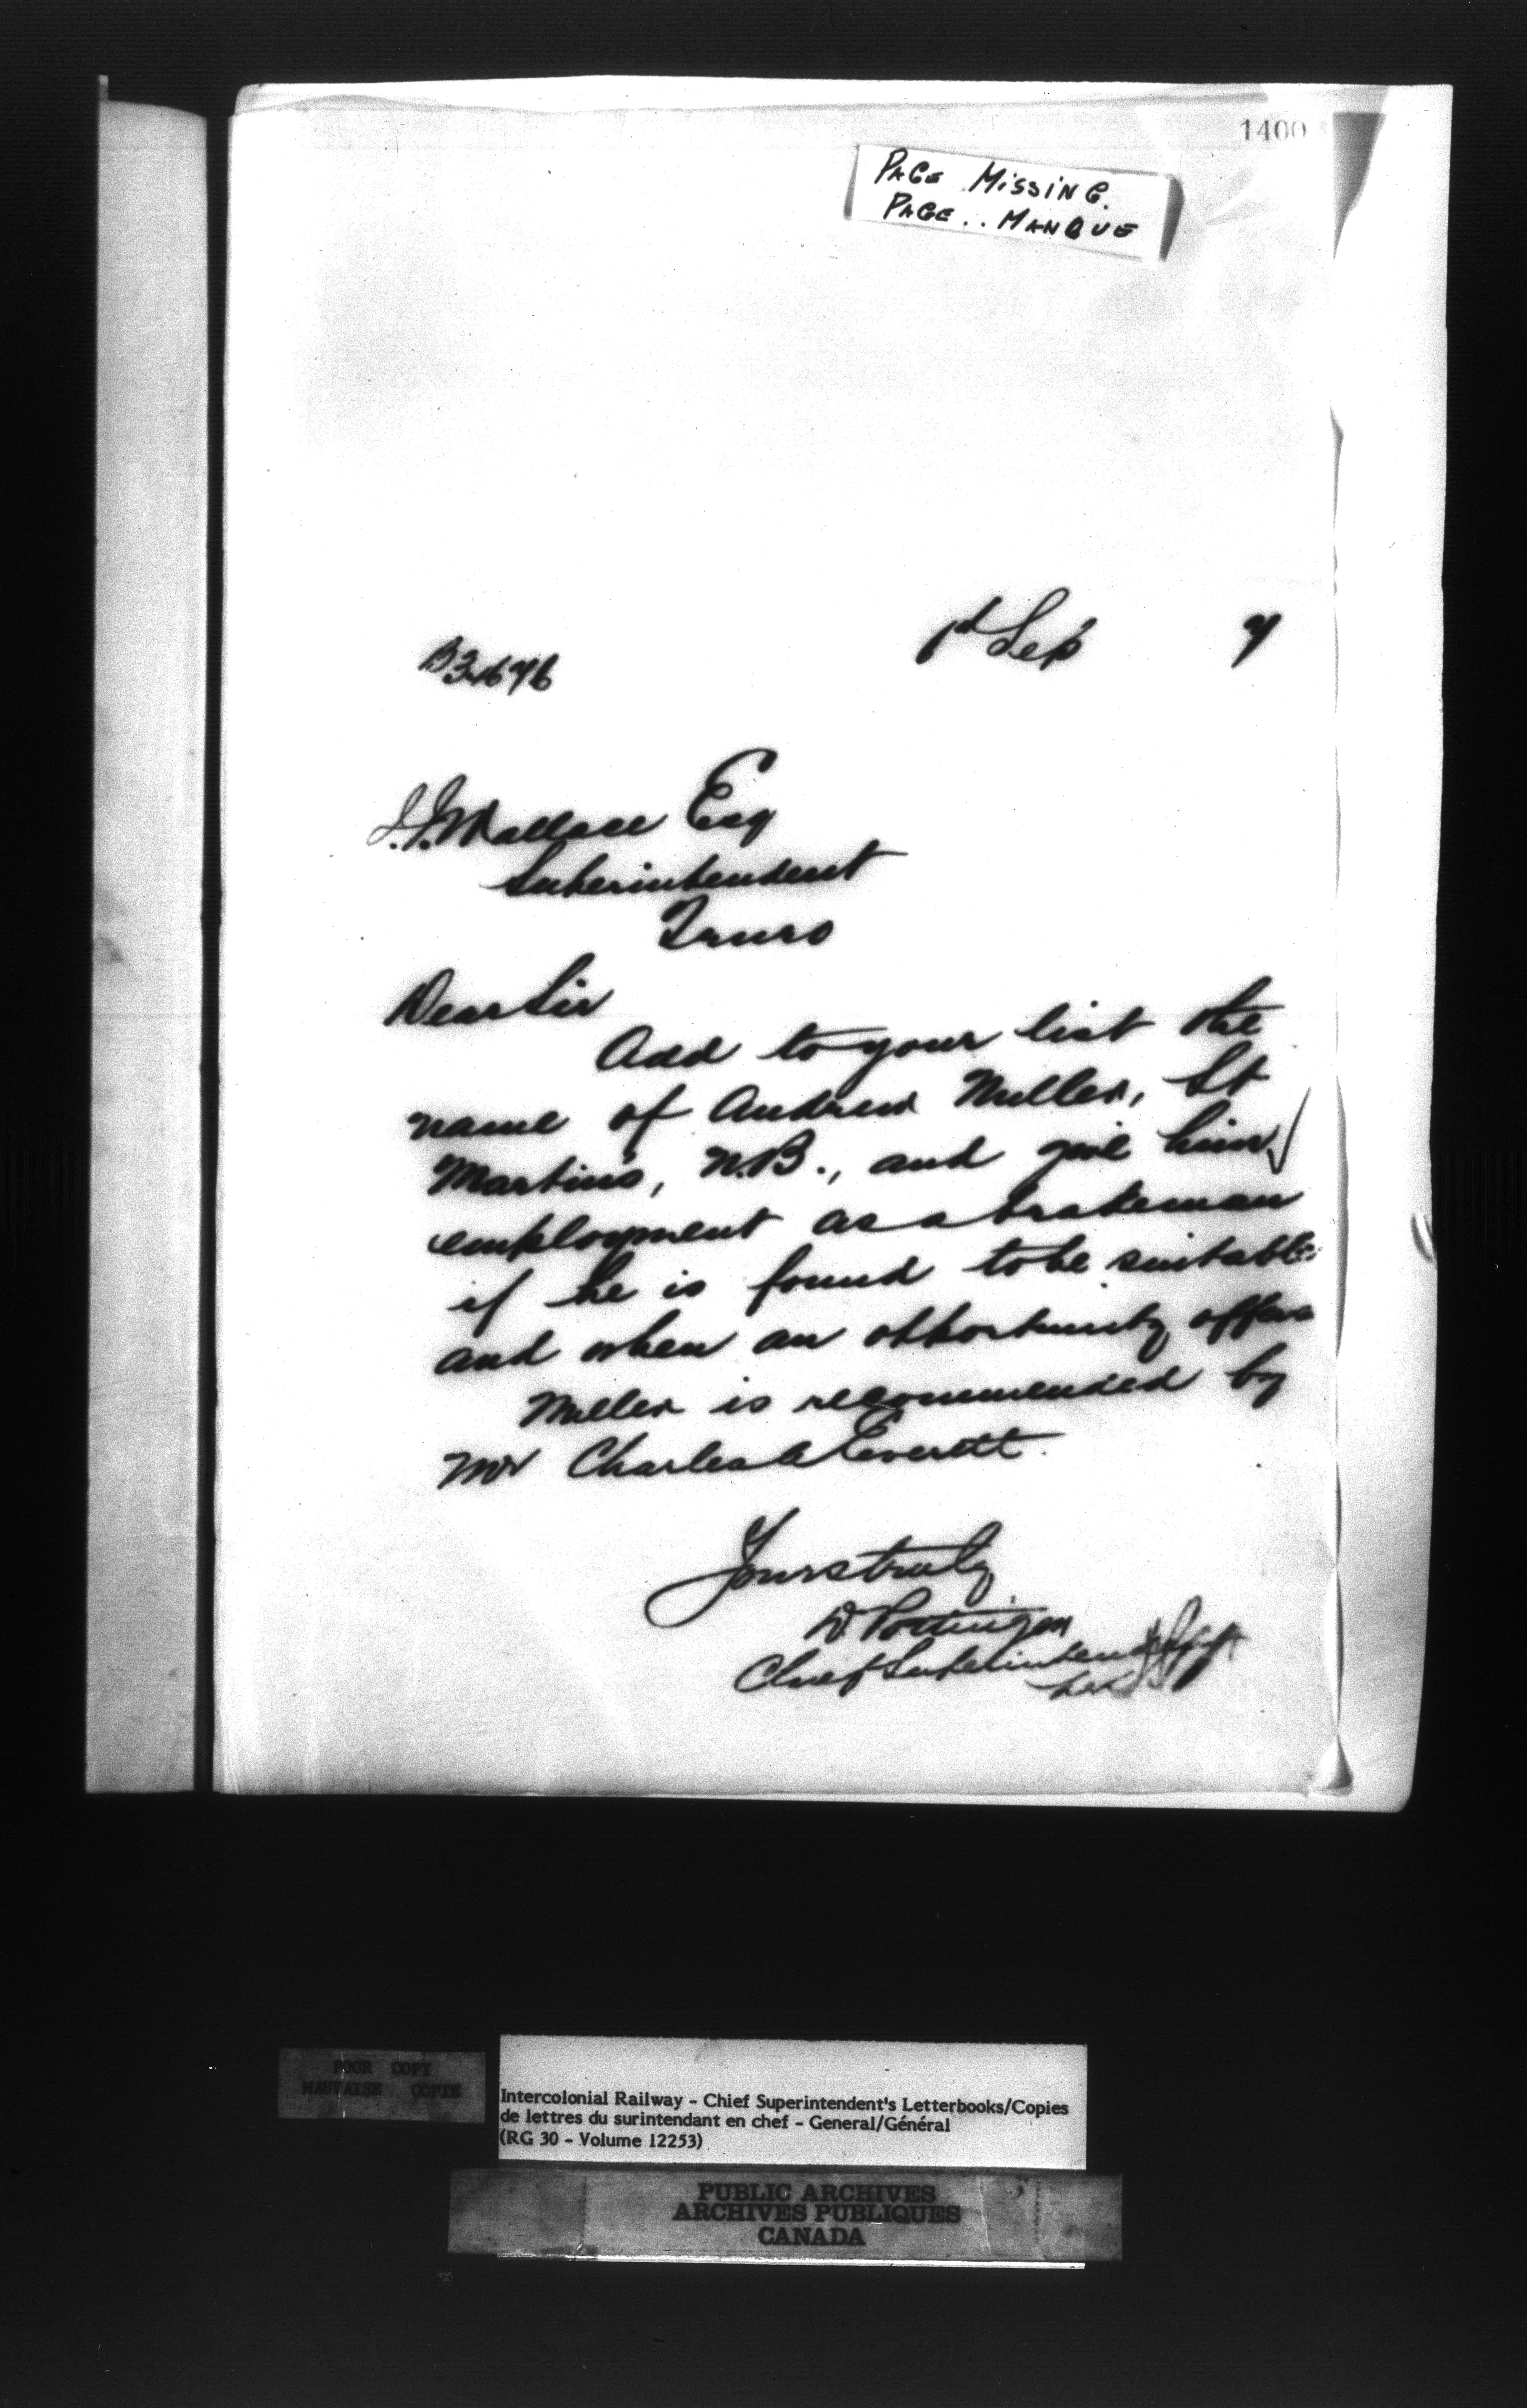 1400
PAGE MISSING.
PAGE.. MANQUE
1st Sep 7
B34676
J.J. Wallace Esq
Superintendent
Truro
Dear Sir
Add to your list the
name of Andrew Miller, St
Martins, N.B., and give him
employment as a brakeman
if he is found to be suitable
and when an opportunity offers
Miller is recommended by
Mr Charles A Everett.
Yours truly
D Pottinger
Chief Superintendent
POOR COPY
MAUVAISE COPIE
Intercolonial Railway - Chief Superintendent's Letterbooks/Copies
de lettres du surintendant en chef - General/Général
(RG 30 - Volume 12253)
PUBLIC ARCHIVES
ARCHIVES PUBLIQUES
CANADA